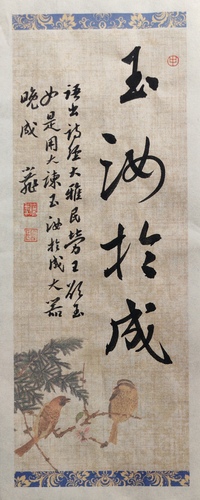 玉汝於成
语出诗经大雅民劳王欲玉
女是用大谏玉汝於成大器
晚成